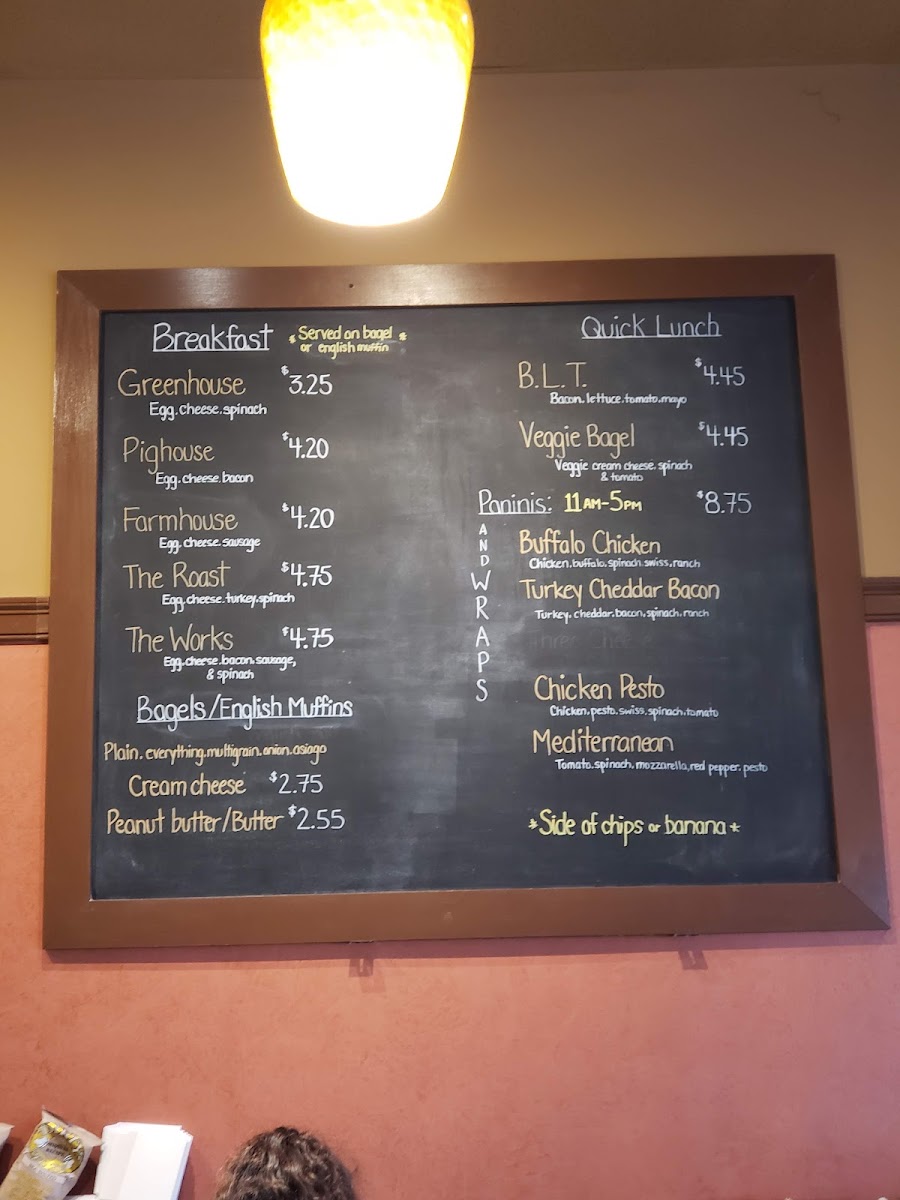 Breakfast
* Served on bagel *
or english muffin
Greenhouse $3.25
Egg, cheese, spinach
Pighouse $4.20
Egg, cheese, bacon
Farmhouse $4.20
Egg, cheese, sausage
The Roast $4.75
Egg, cheese, turkey, spinach
The Works $4.75
Egg, cheese, bacon, sausage,
& spinach
Bagels/English Muffins
Plain, everything, multigrain, onion, asiago
Cream cheese $2.75
Peanut butter/Butter $2.55
Quick Lunch
B.L.T. $4.45
Bacon, lettuce, tomato, mayo
Veggie Bagel $4.45
Veggie cream cheese, spinach
& tomato
Paninis: 11AM-5PM $8.75
AND WRAPS
Buffalo Chicken
Chicken, buffalo, spinach, swiss, ranch
Turkey Cheddar Bacon
Turkey, cheddar, bacon, spinach, ranch
Three Cheese
Chicken Pesto
Chicken, pesto, swiss, spinach, tomato
Mediterranean
Tomato, spinach, mozzarella, red pepper, pesto
*Side of chips or banana*